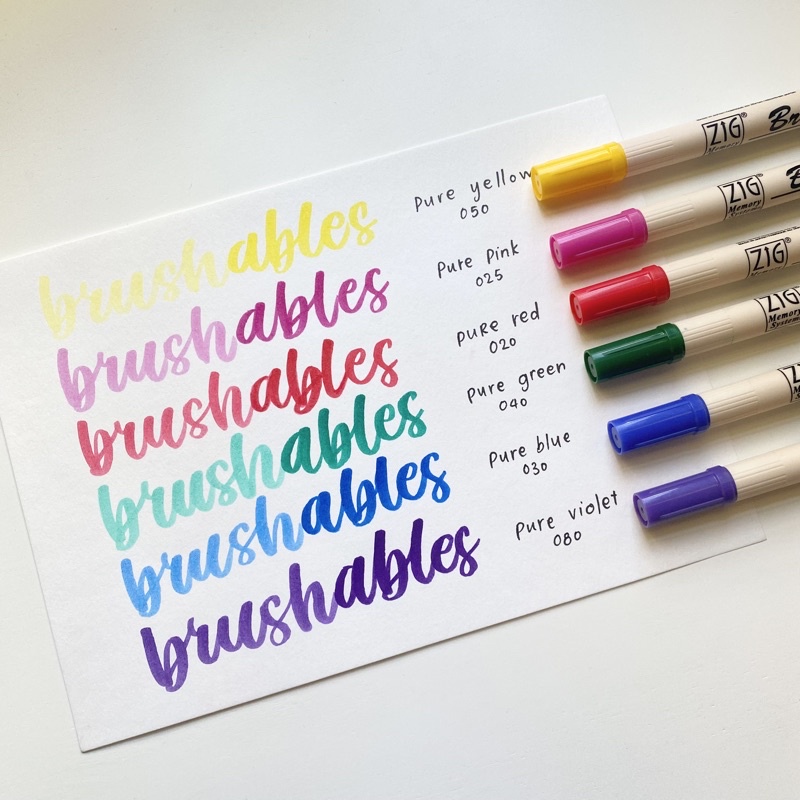 brushables
Pure yellow
050
brushables
Pure Pink
025
brushables
puRe red
020
brushables
pure green
040
brushables
Pure blue
030
brushables
Pure violet
080
ZIG
Memory
ZIG
Memory
System
ZIG
ZIG
Memory
System